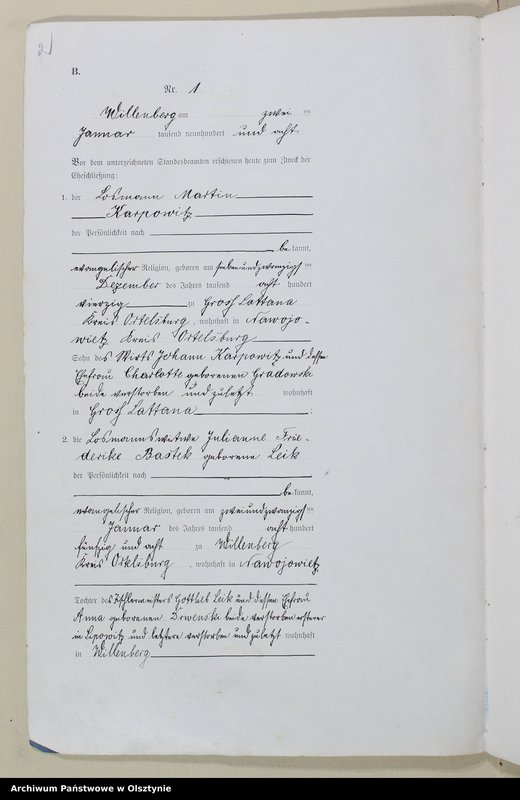 2)
B.
Nr. 1
Willenberg am zwei ten
Januar tausend neunhundert und acht
Vor dem unterzeichneten Standesbeamten erschienen heute zum Zweck der
Eheschließung:
1. der Losmann Martin
Karpowitz
der Persönlichkeit nach
be kannt,
evangelischer Religion, geboren am siebenundzwanzigsten
Dezember des Jahres tausend acht hundert
vierzig zu Groß Lattana
Kreis Ortelsburg, wohnhaft in Nawojo-
wietz Kreis Ortelsburg
Sohn des Wirts Johann Karpowitz und dessen
Ehefrau Charlotte geborenen Gradowski
beide verstorben und zuletzt wohnhaft
in Groß Lattana ;
2. die Losmannswitwe Julianne Frie-
derike Bastek geborene Leik
der Persönlichkeit nach
be kannt,
evangelischer Religion, geboren am zweiundzwanzigsten
Januar des Jahres tausend acht hundert
fünfzig und acht zu Willenberg
Kreis Ortelsburg, wohnhaft in Nawojowietz
Tochter des Tischlermeisters Gottlieb Leik und dessen Ehefrau
Anna geborenen Drwenski beide verstorben ersterer
in Lipowitz und letztere verstorben und zuletzt wohnhaft
in Willenberg
Archiwum Państwowe w Olsztynie